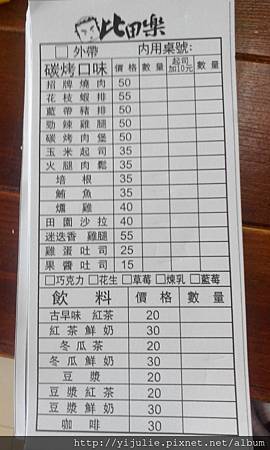 比田樂
□ 外帶 内用桌號:
碳烤口味 價格 數量 起司加10元 數量
招牌燒肉 50
花枝蝦排 55
藍帶豬排 50
勁辣雞腿 50
碳烤肉堡 50
玉米起司 35
火腿肉鬆 35
培根 35
鮪魚 35
燻雞 40
田園沙拉 40
迷迭香雞腿 55
雞蛋吐司 25
果醬吐司 15
□巧克力 □花生 □草莓 □煉乳 □藍莓
飲料 價格 數量
古早味紅茶 20
紅茶鮮奶 30
冬瓜茶 20
冬瓜鮮奶 30
豆漿 20
豆漿紅茶 20
豆漿鮮奶 30
咖啡 30
http://yijulie.pixnet.net/album